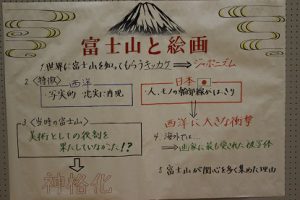 富士山と絵画
1 世界に富士山を知ってもらうキッカケ ⇒ ジャポニズム
2 <特徴> 西洋
写実的 忠実に再現
日本
人、モノの輪郭線がはっきり
西洋に大きな衝撃
3 <当時の富士山>
美術としての役割を
果たしていなかった!?
神格化
4 海外では…
⇒ 画家に最も愛された被写体
5 富士山が関心を多く集めた理由